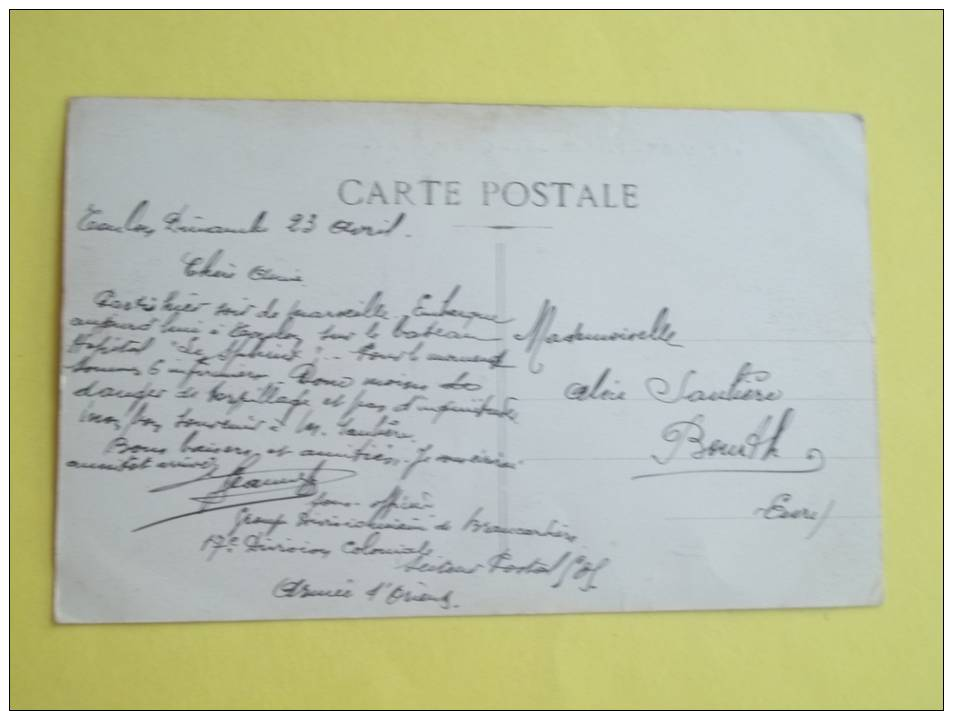 CARTE POSTALE
Toulon, Dimanche 23 Avril.
Chère Amie
Parti hier soir de Marseille. Embarque
aujourd'hui à Toulon sur le bateau
Hôpital "Le Sphinx". Pour le moment
sommes 6 infirmiers Donc moins de
danger de torpillage et pas d'inquiétude
Mon bon souvenir à M. Sautière
Bons baisers et amitiés. Je vous écrirai
aussitôt arrivé
Sous-officier
Group Divisionnaire de Brancardiers
17e Division Coloniale
Secteur Postal
Armée d'Orient.
Mademoiselle
Alice Sautière
Bourth
Eure